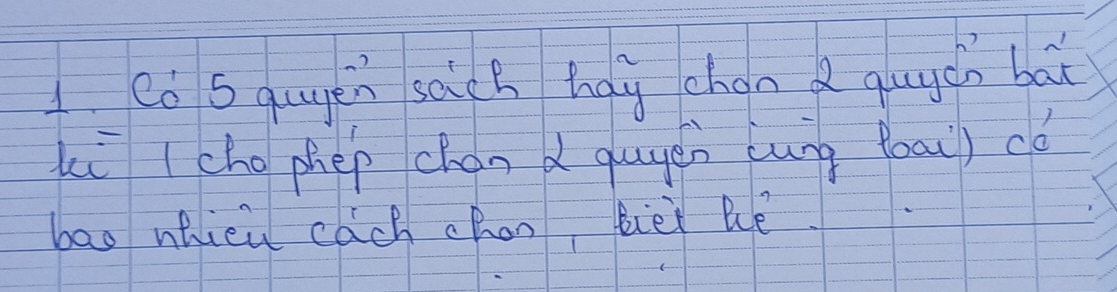 1. Có 5 quyển sách hãy chọn 2 quyển bất
kì (cho phép chọn 2 quyển cùng loại) có
bao nhiêu cách chọn, liệt kê.